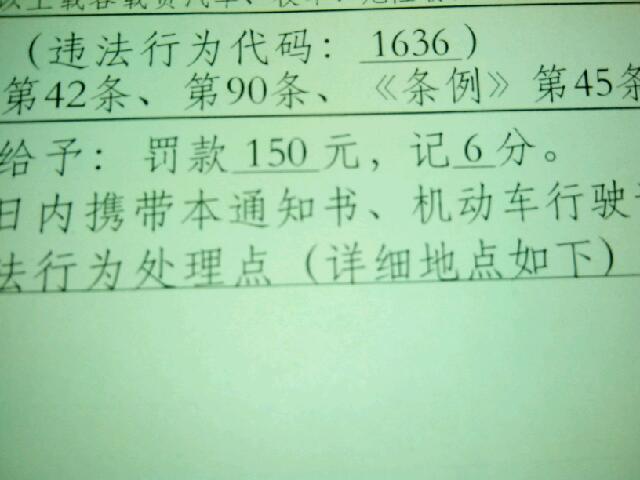 (违法行为代码: 1636)
第42条、第90条、《条例》第45条
给予: 罚款 150 元, 记 6 分。
日内携带本通知书、机动车行驶
法行为处理点 (详细地点如下)